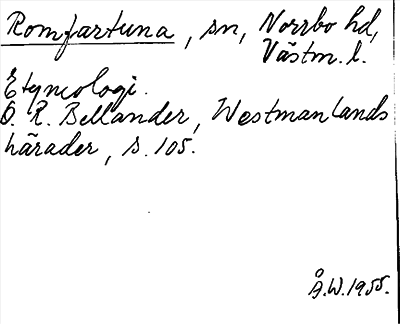 Romfartuna, sn, Norrbo hd,
Västm. l.
Etymologi.
O. R. Bellander, Westmanlands
härader, s. 105.
Å.W. 1955.